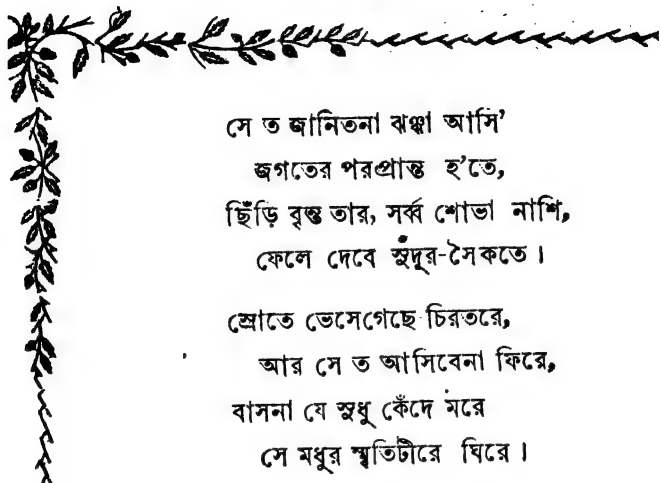 সে ত জানিতনা ঝঞ্ঝা আসি'
জগতের পরপ্রান্ত হ'তে,
ছিঁড়ি বৃন্ত তার, সর্ব্ব শোভা নাশি,
ফেলে দেবে সুঁদূর-সৈকতে ।
স্রোতে ভেসেগেছে চিরতরে,
আর সে ত আসিবেনা ফিরে,
বাসনা যে সুধু কেঁদে মরে
সে মধুর স্মৃতিটীরে ঘিরে ।